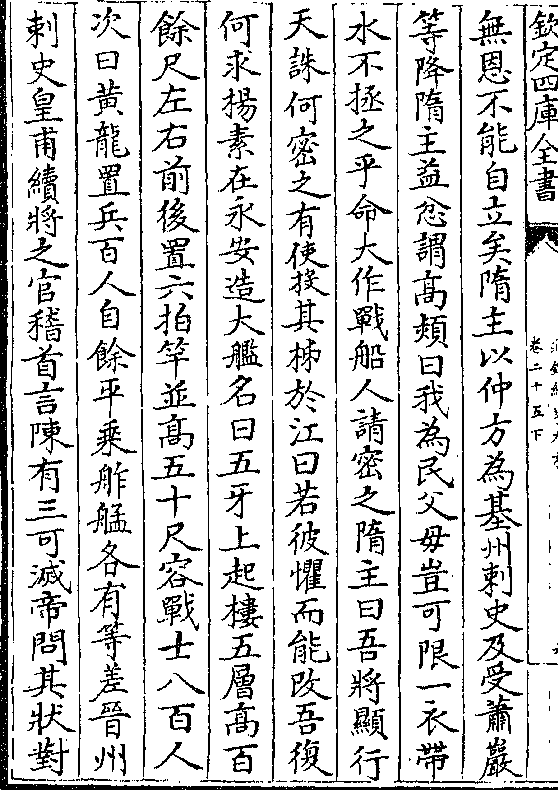 欽定四庫全書
卷二十五下
無恩不能自立矣隋主以仲方為基州刺史及受蕭巖
等降隋主益忿謂髙熲曰我為民父母豈可限一衣帶
水不拯之乎命大作戰船人請密之隋主曰吾將顯行
天誅何密之有使投其柹於江曰若彼懼而能改吾復
何求楊素在永安造大艦名曰五牙上起樓五層髙百
餘尺左右前後置六拍竿並髙五十尺容戰士八百人
次曰黃龍置兵百人自餘平乘舴艋各有等差晉州
刺史皇甫續將之官稽首言陳有三可滅帝問其狀對